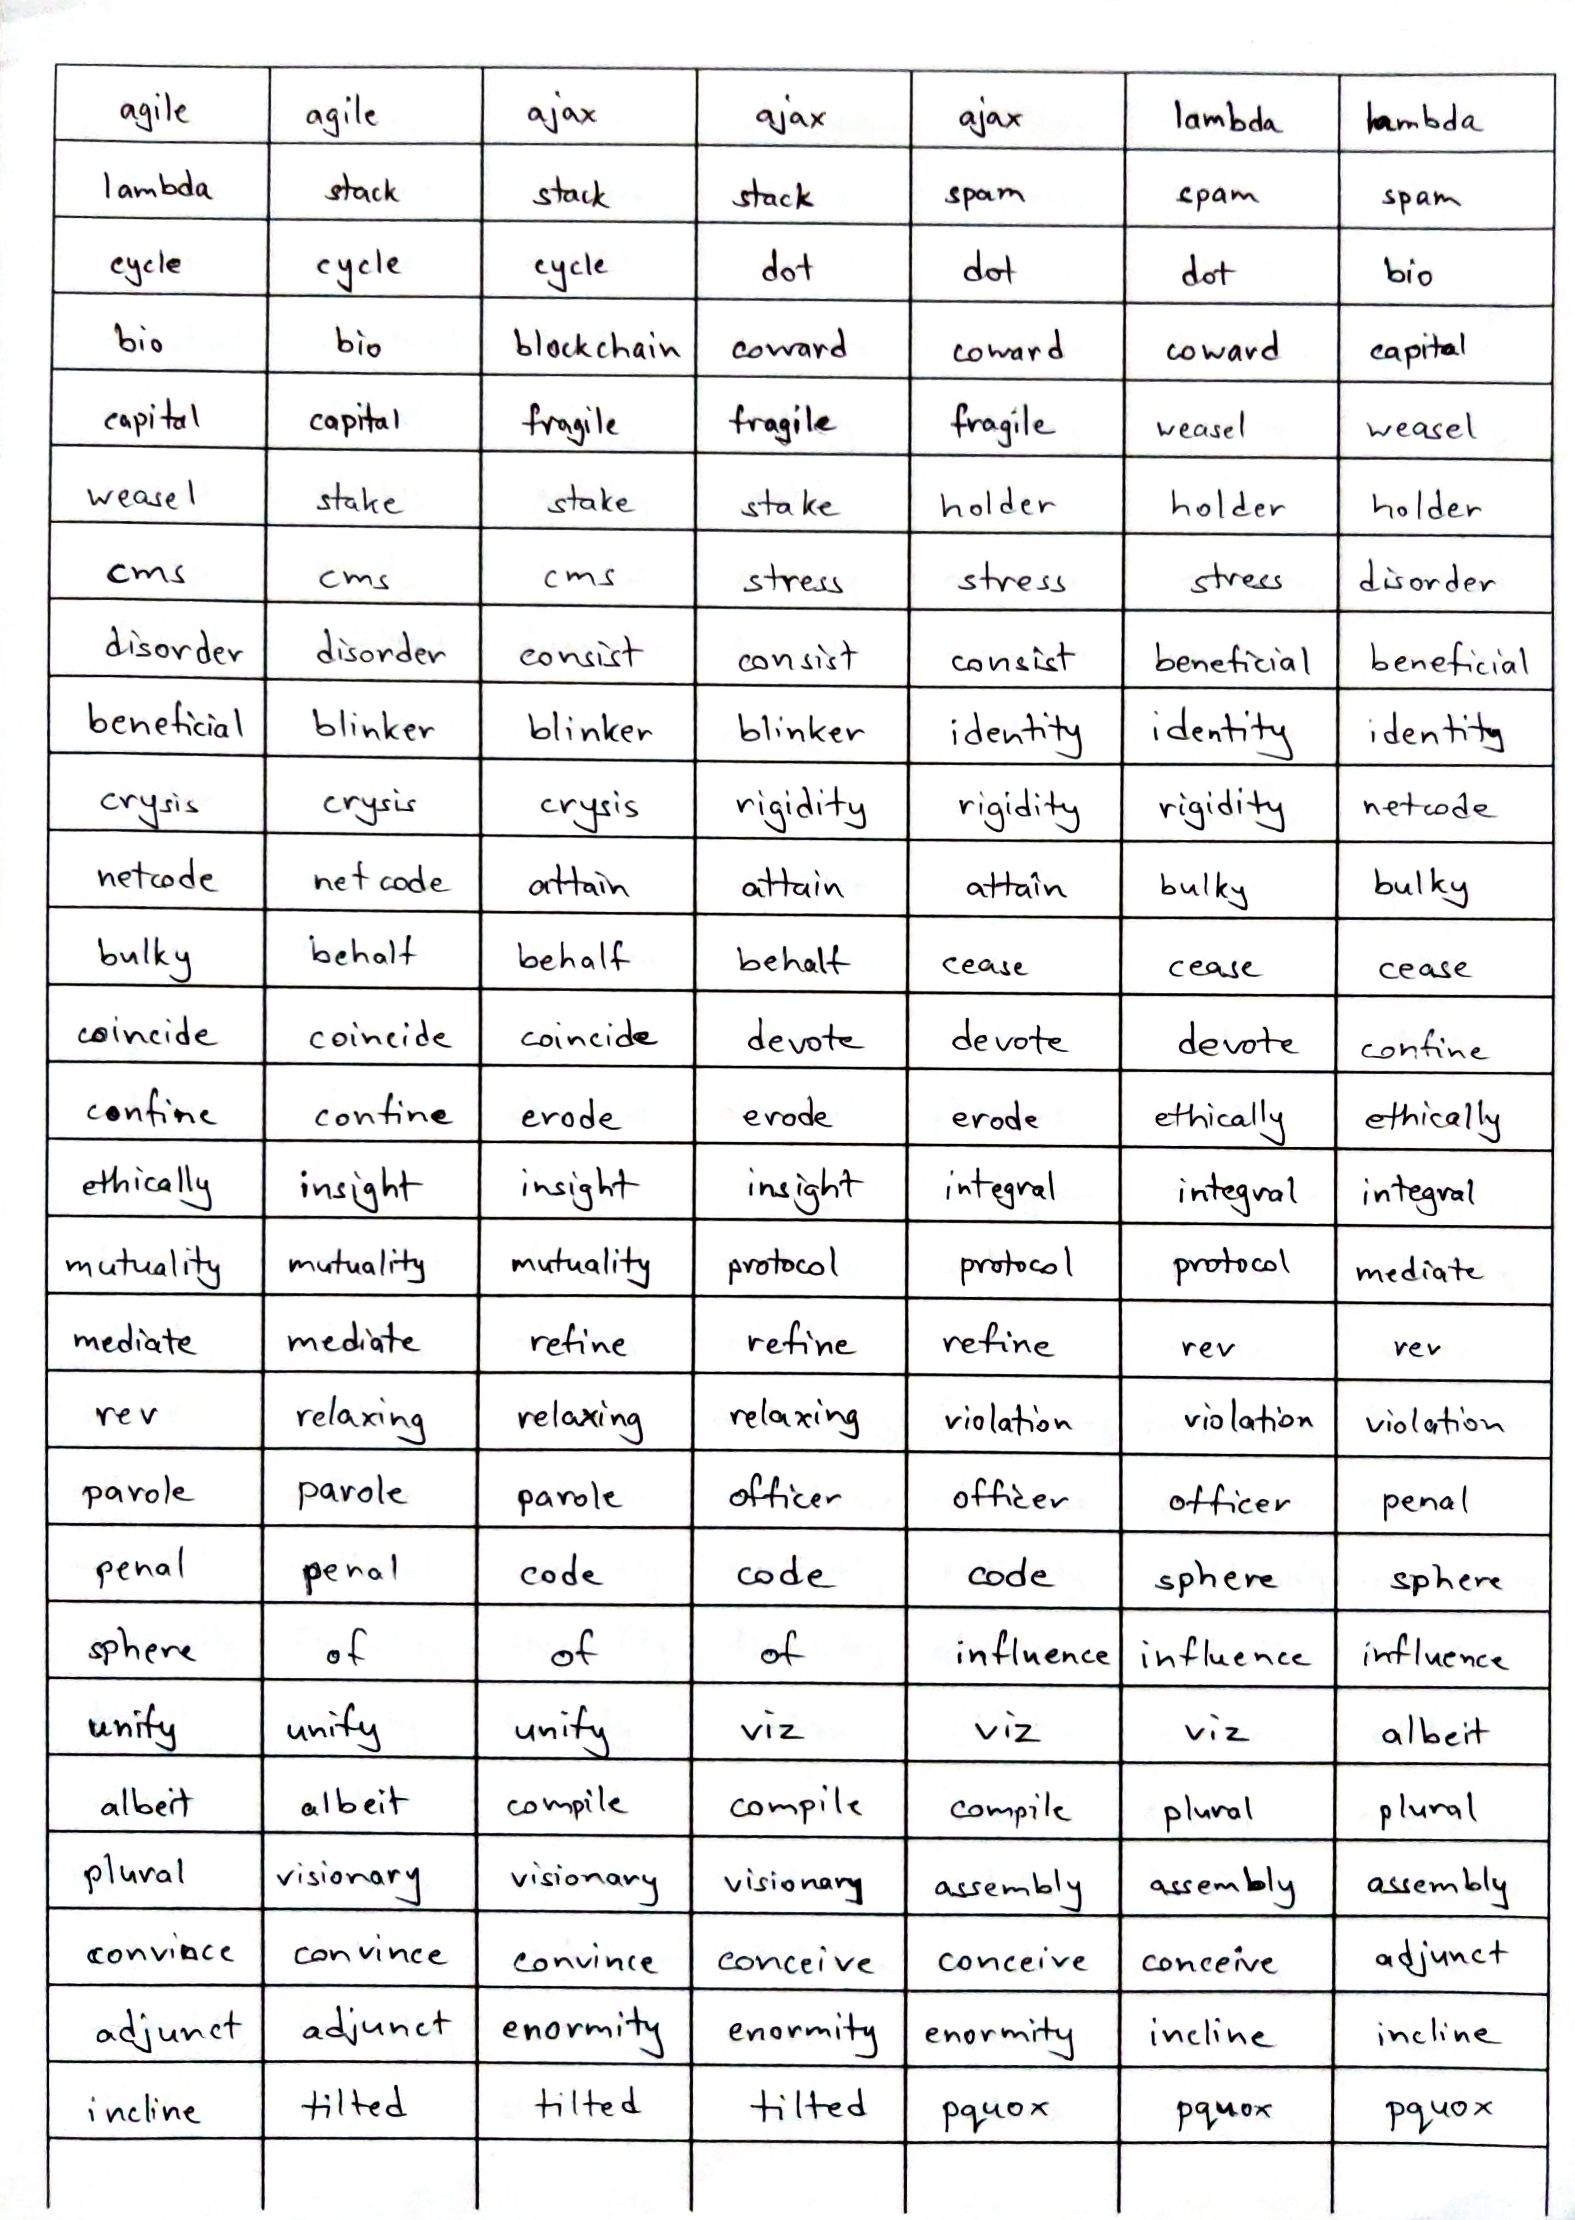 agile agile ajax ajax ajax lambda lambda
lambda stack stack stack spam spam spam
cycle cycle cycle dot dot dot bio
bio bio blockchain coward coward coward capital
capital capital fragile fragile fragile weasel weasel
weasel stake stake stake holder holder holder
cms cms cms stress stress stress disorder
disorder disorder consist consist consist beneficial beneficial
beneficial blinker blinker blinker identity identity identity
crysis crysis crysis rigidity rigidity rigidity netcode
netcode netcode attain attain attain bulky bulky
bulky behalf behalf behalf cease cease cease
coincide coincide coincide devote devote devote confine
confine confine erode erode erode ethically ethically
ethically insight insight insight integral integral integral
mutuality mutuality mutuality protocol protocol protocol mediate
mediate mediate refine refine refine rev rev
rev relaxing relaxing relaxing violation violation violation
parole parole parole officer officer officer penal
penal penal code code code sphere sphere
sphere of of of influence influence influence
unify unify unify viz viz viz albeit
albeit albeit compile compile compile plural plural
plural visionary visionary visionary assembly assembly assembly
convince convince convince conceive conceive conceive adjunct
adjunct adjunct enormity enormity enormity incline incline
incline tilted tilted tilted pquox pquox pquox